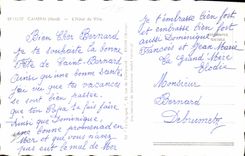 CAMBRAI (Nord) - L'Hôtel de Ville
Bien Cher Bernard
Je te souhaite la bonne
Fête de Saint Bernard
ainsi qu'une bonne santé
J'ai vu que tes vacances
se sont bien passées
que ton a fait faire
ainsi que Dominique,
une bonne promenade en
Mer et que vous n'avez
pas eu le mal de Mer
Je t'embrasse bien fort
et embrasse bien fort
aussi Dominique
Francois et Jean Marie
La Grand Mère
Elodie
Monsieur
Bernard